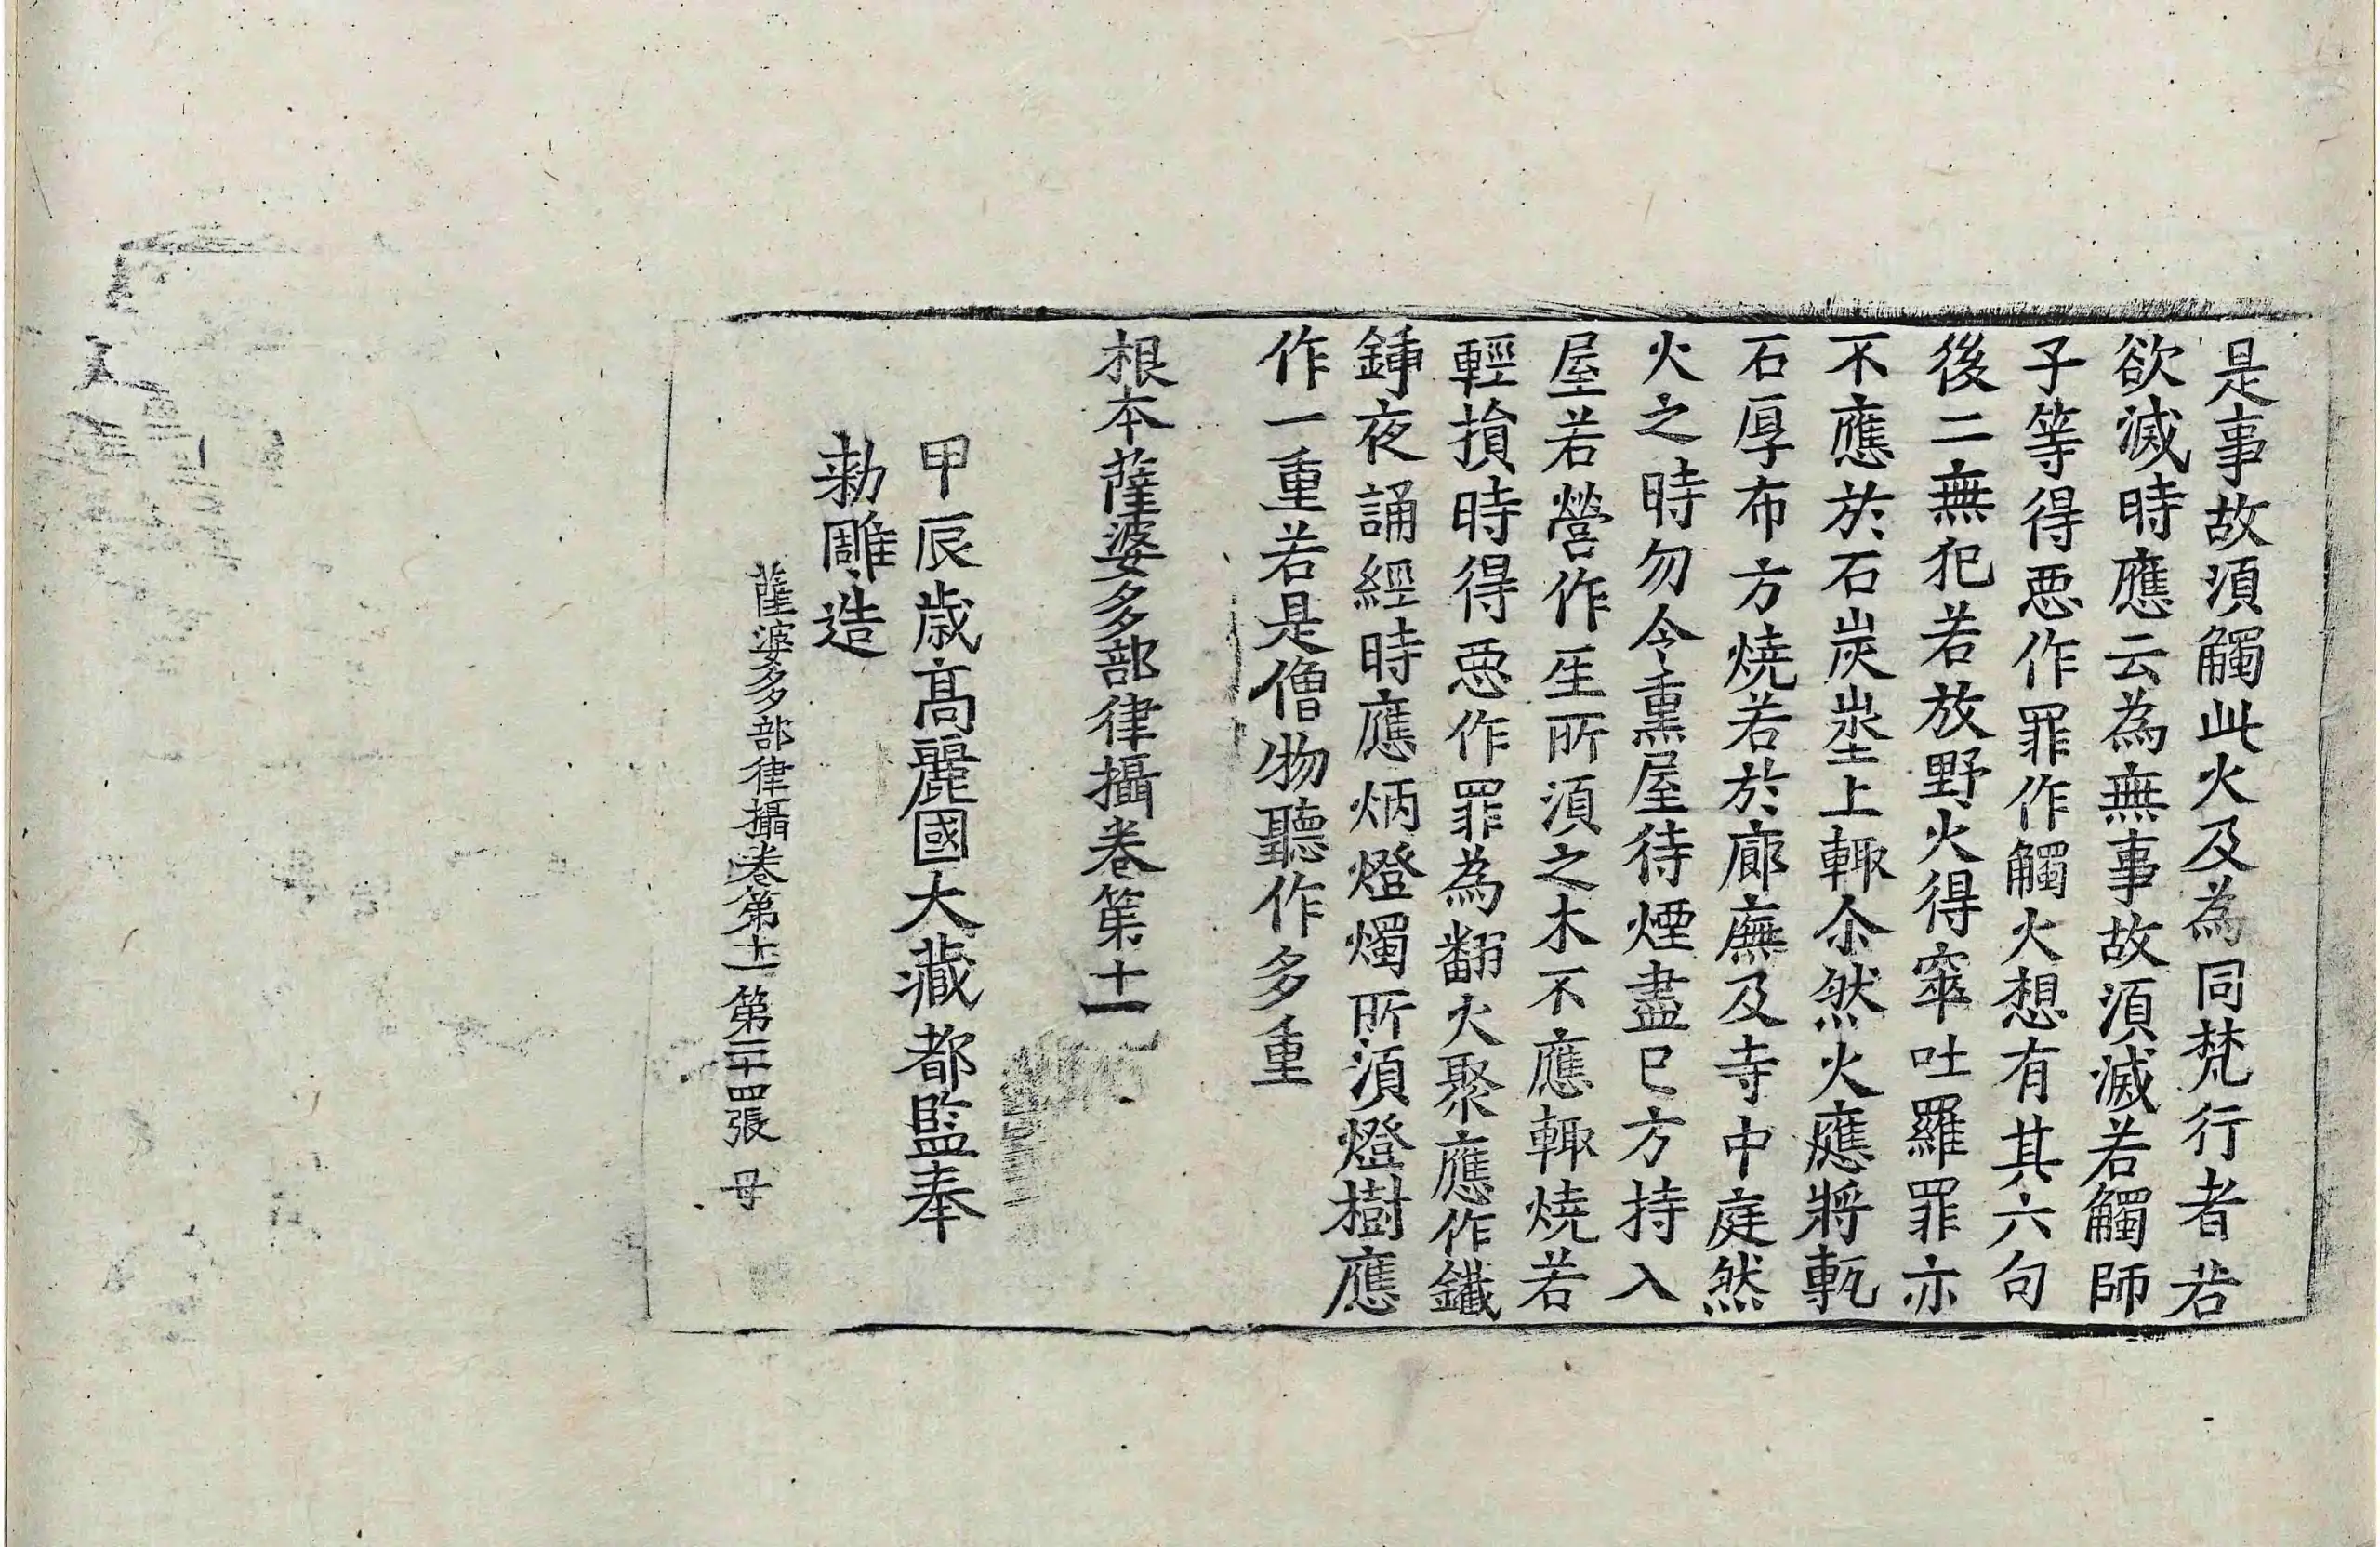 是事故湏觸此火及為同梵行者若
欲滅時應云為無事故湏滅若觸師
子等得悪作罪作觸火想有其六句
後二無犯若放野火得窣吐羅罪亦
不應於石炭埊上輙尒然火應將甎
石厚布方燒若於廊廡及寺中庭然
火之時勿令熏屋待煙盡已方持入
屋若營作生所湏之木不應輙燒若
輕損時得悪作罪為翻火聚應作鐵
鍤夜誦經時應炳燈燭所湏燈樹應
作一重若是僧物聽作多重
根本薩婆多部律攝卷第十一
甲辰歳髙麗國大藏都監奉
勑雕造
薩婆多部律攝卷第十一 第二十四張 母